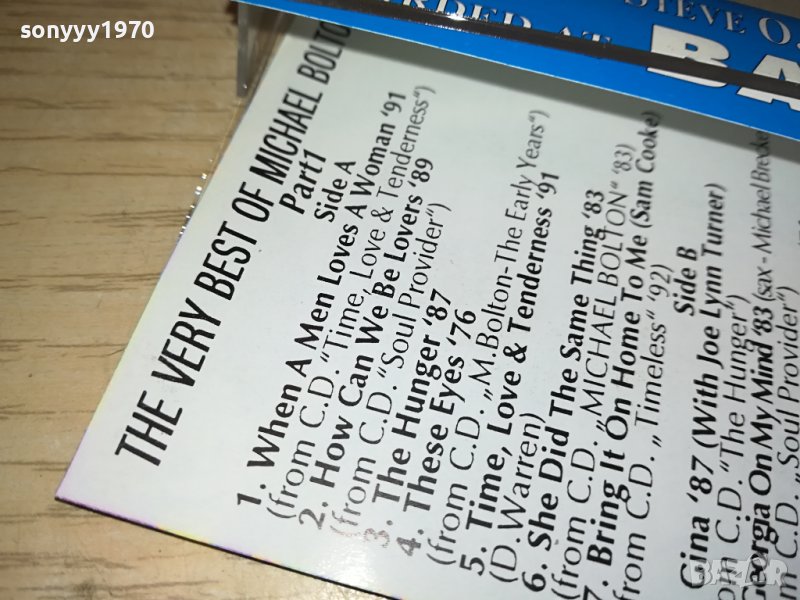 sonyyy1970
STEVE
RDED AT
BA
THE VERY BEST OF MICHAEL BOLTO
Part1
Side A
1. When A Men Loves A Woman '91
(from C.D. "Time, Love & Tenderness")
2. How Can We Be Lovers '89
(from C.D. "Soul Provider")
3. The Hunger '87
4. These Eyes '76
(from C.D. „M.Bolton-The Early Years")
5. Time, Love & Tenderness '91
(D.Warren)
6. She Did The Same Thing '83
(from C.D. „MICHAEL BOLTON" '83)
7. Bring It On Home To Me (Sam Cooke)
from C.D. „Timeless" '92)
Side B
Gina '87 (With Joe Lynn Turner)
om C.D. "The Hunger")
Georgia On My Mind '83 (sax - Michael Brecke
m C.D. „Soul Provider")
BAZAR